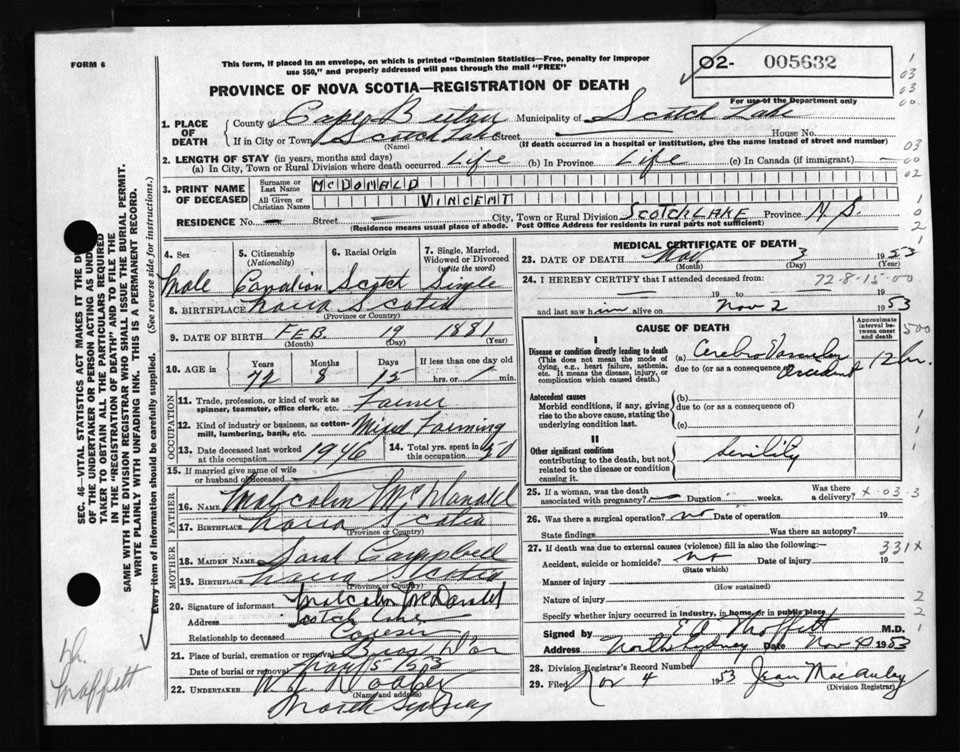 FORM 6
This form, if placed in an envelope, on which is printed "Dominion Statistics—Free, penalty for improper
use $50," and properly addressed will pass through the mail "FREE"
02- 005632
For use of the Department only
PROVINCE OF NOVA SCOTIA—REGISTRATION OF DEATH
1. PLACE OF DEATH
County of Cape Breton Municipality of Scotch Lake
If in City or Town Scotch Lake Street House No.
(Name) (If death occurred in a hospital or institution, give the name instead of street and number)
2. LENGTH OF STAY (in years, months and days)
(a) In City, Town or Rural Division where death occurred Life (b) In Province Life (c) In Canada (if immigrant) —
3. PRINT NAME OF DECEASED
Surname or Last Name McDONALD
All Given or Christian Names VINCENT
RESIDENCE No. — Street — City, Town or Rural Division SCOTCH LAKE Province N.S.
(Residence means usual place of abode. Post Office Address for residents in rural parts not sufficient)
4. Sex Male
5. Citizenship (Nationality) Canadian
6. Racial Origin Scotch
7. Single, Married, Widowed or Divorced (write the word) Single
8. BIRTHPLACE Nova Scotia
(Province or Country)
9. DATE OF BIRTH FEB. 19 1881
(Month) (Day) (Year)
10. AGE in Years Months Days If less than one day old
72 8 15 hrs. or min.
OCCUPATION
11. Trade, profession, or kind of work as spinner, teamster, office clerk, etc. Farmer
12. Kind of industry or business, as cotton-mill, lumbering, bank, etc. Mixed Farming
13. Date deceased last worked at this occupation 1946
14. Total yrs. spent in this occupation
15. If married give name of wife or husband of deceased
FATHER
16. NAME Malcolm McDonald
17. BIRTHPLACE Nova Scotia
(Province or Country)
MOTHER
18. MAIDEN NAME Sarah Campbell
19. BIRTHPLACE Nova Scotia
(Province or Country)
20. Signature of informant Malcolm McDonald
Address Scotch Lake
Relationship to deceased
21. Place of burial, cremation or removal Bras D'or
Date of burial or removal
22. UNDERTAKER
(Name and address)
North Sydney
MEDICAL CERTIFICATE OF DEATH
23. DATE OF DEATH Nov 3 1953
(Month) (Day) (Year)
24. I HEREBY CERTIFY that I attended deceased from: 72-8-15-00
— 19 — to — 19
and last saw him alive on Nov 2 1953
CAUSE OF DEATH
Approximate interval between onset and death
I
Disease or condition directly leading to death
(This does not mean the mode of dying, e.g., heart failure, asthenia, etc. It means the disease, injury, or complication which caused death.)
(a) Cerebro Vascular Accident 12 hr.
due to (or as a consequence of)
Antecedent causes
Morbid conditions, if any, giving rise to the above cause, stating the underlying condition last.
(b)
due to (or as a consequence of)
(c)
II
Other significant conditions
contributing to the death, but not related to the disease or condition causing it.
Senility
25. If a woman, was the death associated with pregnancy? — Duration weeks. Was there a delivery?
26. Was there a surgical operation? no Date of operation 19
State findings Was there an autopsy?
27. If death was due to external causes (violence) fill in also the following:—
Accident, suicide or homicide? no Date of injury 19
(State which)
Manner of injury
(How sustained)
Nature of injury
Specify whether injury occurred in industry, in home, or in public place
331x
Signed by E A Moffett M.D.
Address North Sydney Date Nov 4 1953
28. Division Registrar's Record Number
29. Filed Nov 4 1953 Jean MacAulay
(Division Registrar)
SEC. 46—VITAL STATISTICS ACT MAKES IT THE
OF THE UNDERTAKER OR PERSON ACTING AS UNDE
TAKER TO OBTAIN ALL THE PARTICULARS REQUIRED
IN THE "REGISTRATION OF DEATH" AND TO FILE THE
SAME WITH THE DIVISION REGISTRAR WHO SHALL ISSUE THE BURIAL PERMIT.
WRITE PLAINLY WITH UNFADING INK. THIS IS A PERMANENT RECORD.
Every item of information should be carefully supplied. (See reverse side for instructions.)
Dr. Moffett